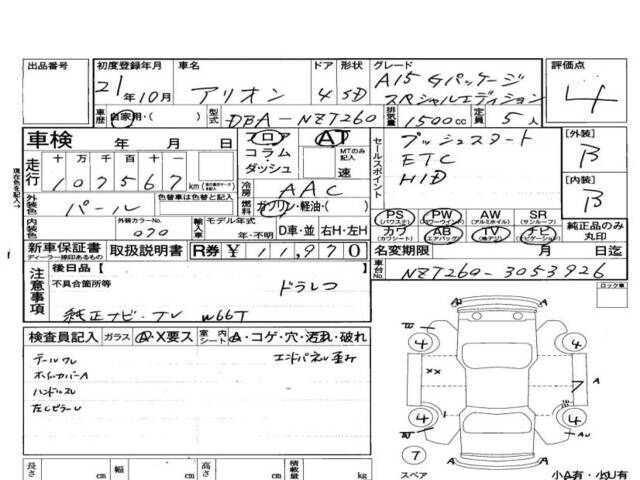 出品番号 初度登録年月 車名 ドア 形状 グレード 評価点
21年10月 アリオン 4 SD A15 Gパッケージ スペシャルエディション 4
車歴 自家用・( ) 型式 DBA-NZT260 排気量 1500cc 定員 5人
車検 年 月 日 フロア コラム・ダッシュ AT MTのみ記入 速
セールスポイント プッシュスタート
ETC
HID
[外装] B
[内装] B
走行 十万千百十一 107567 km
冷房 AAC
外装色 パール 色替車は色替と記入 燃料 ガソリン・軽油・( )
内装色 外装カラーNo. 070 輸入車 モデル年式 年・不明 D車・並 右H・左H
PS (パワステ) PW (パワーウインド) AW (アルミホイル) SR (サンルーフ)
カワ (カワシート) AB (エアバッグ) TV ナビ (ナビゲーション)
純正品のみ丸印
新車保証書 ディーラー捺印あるもの 取扱説明書 R券 ¥ 11,970 名変期限 月 日迄
注意事項 後日品 [ ] 車台No. NZT260-3053926
現在色を記入
不具合箇所等 ドラレコ
純正ナビ・TV W66T
ロック車
検査員記入 ガラス Ⓐ・X要ス 室内シート Ⓐ・コゲ・穴・汚れ・破れ
テールワレ エンドパネル歪み
ホイルカバーA
ハンドルスレ
左CピラーU
4 4 A XX 7 A 4 4 A A
7
スペア 小A有・小U有
長さ cm 幅 cm 高さ cm 積載量 kg